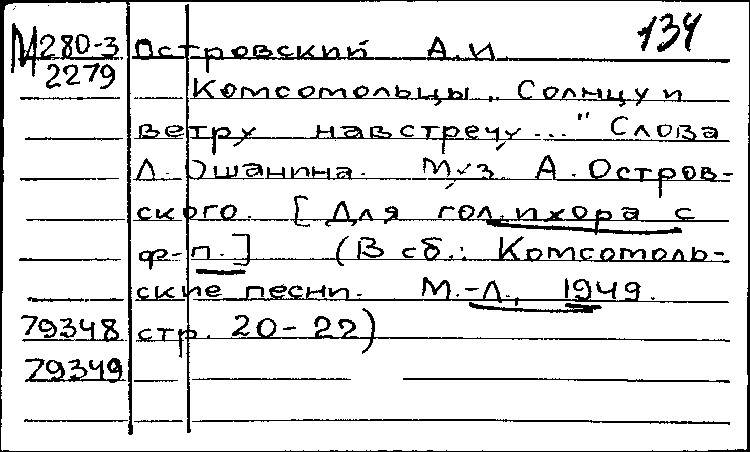 134
М280-3 Островский А.И.
2279
Комсомольцы „Солнцу и
ветру навстречу..." Слова
Л. Ошанина. Муз. А. Остров-
ского. [Для гол. и хора с
ф-п.] (В сб.: Комсомоль-
ские песни. М.-Л., 1949.
79348 стр. 20-22)
79349